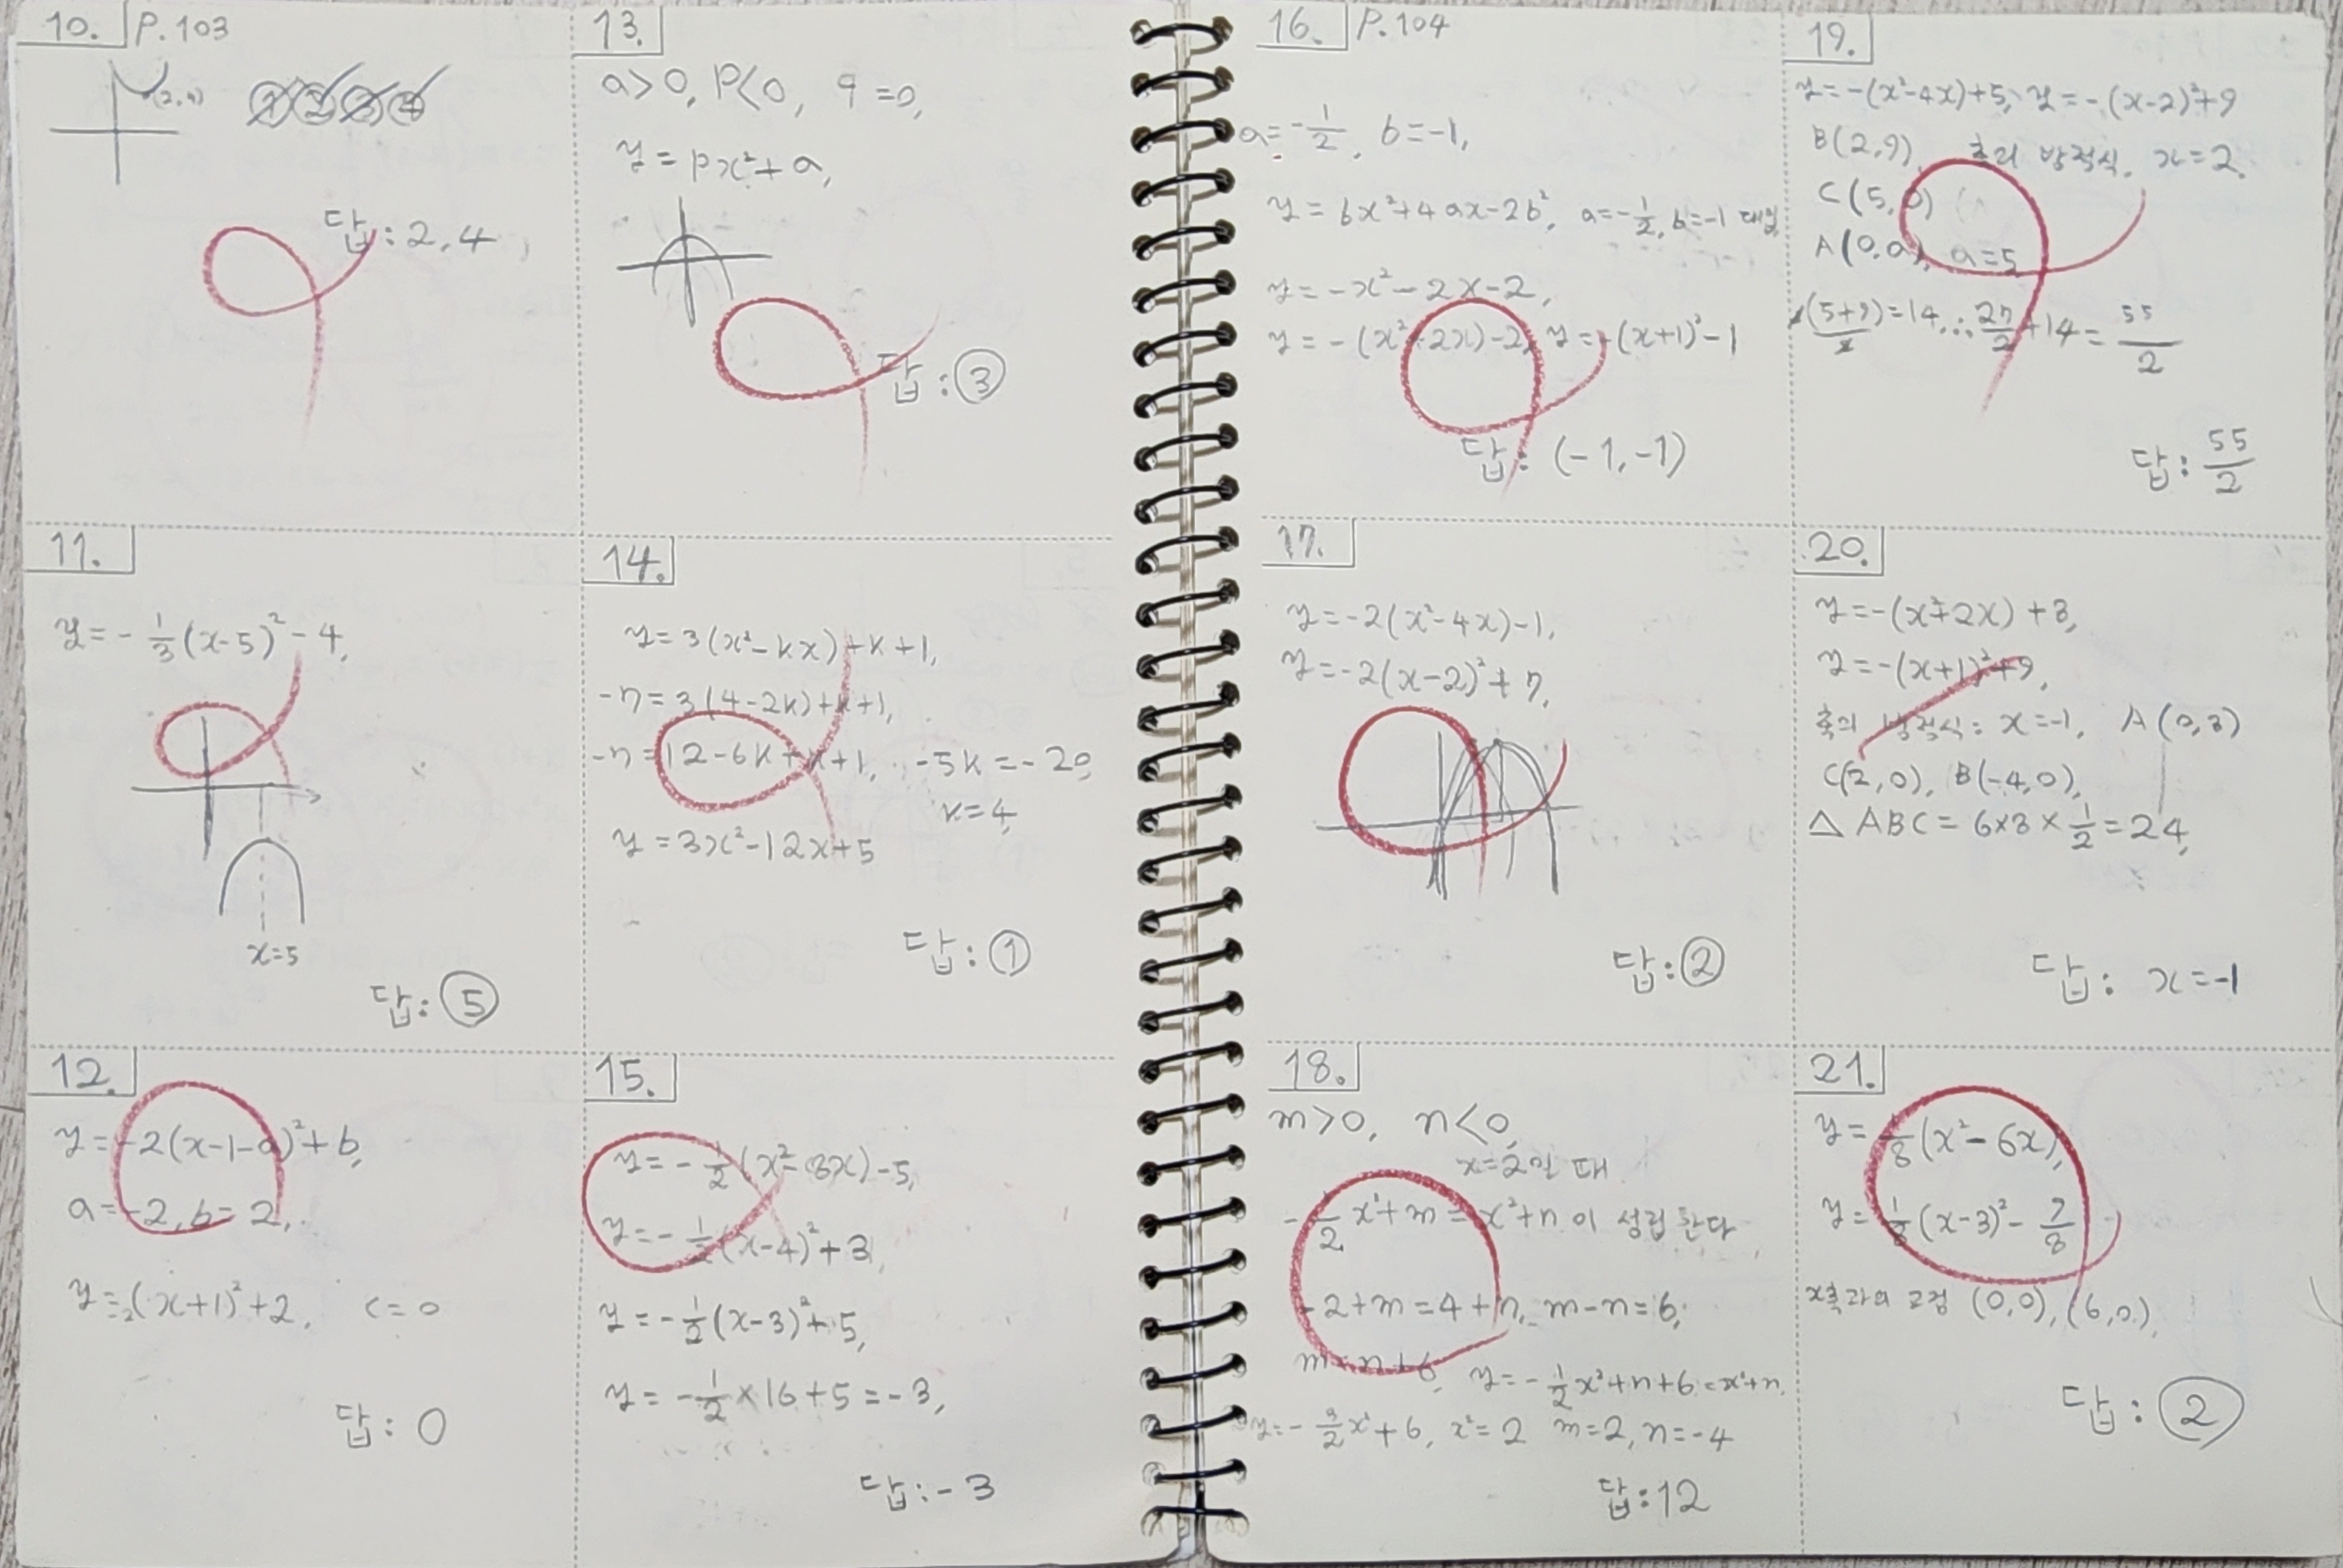 10. P.103
(2,4)
답: 2, 4
11.
y = -1/3(x-5)² - 4,
x=5
답: ⑤
12.
y = -2(x-1-a)² + b,
a = -2, b = 2,
y = -2(x+1)² + 2, c = 0
답: 0
13.
a>0, P<0, q=0,
y = px² + a,
답: ③
14.
y = 3(x²-kx)+k+1,
-7 = 3(4-2k)+k+1,
-7 = 12-6k+k+1, -5k = -20,
k=4,
y = 3x²-12x+5
답: ①
15.
y = -1/2(x²-8x)-5,
y = -1/2(x-4)²+3,
y = -1/2(x-3)²+5,
y = -1/2×16+5 = -3,
답: -3
16. P.104
a = -1/2, b = -1,
y = bx²+4ax-2b², a=-1/2, b=-1 대입
y = -x²-2x-2,
y = -(x²+2x)-2, y = -(x+1)²-1
답: (-1, -1)
17.
y = -2(x²-4x)-1,
y = -2(x-2)²+7,
답: ②
18.
m>0, n<0,
x=2일 때
-1/2x²+m = x²+n 이 성립한다
-2+m = 4+n, m-n=6,
m=n+6, y = -1/2x²+n+6 = x²+n,
y = -3/2x²+6, x²=2 m=2, n=-4
답: 12
19.
y = -(x²-4x)+5, y = -(x-2)²+9
B(2,9), 축의 방정식, x=2.
C(5,0)
A(0,a), a=5
(5+9)/2=14, ∴ 27/2+14 = 55/2
답: 55/2
20.
y = -(x²+2x)+8,
y = -(x+1)²+9,
축의 방정식: x=-1, A(0,8)
C(2,0), B(-4,0),
△ABC = 6×8×1/2 = 24,
답: x=-1
21.
y = 1/8(x²-6x),
y = 1/8(x-3)²-9/8
x축과의 교점 (0,0), (6,0),
답: ②